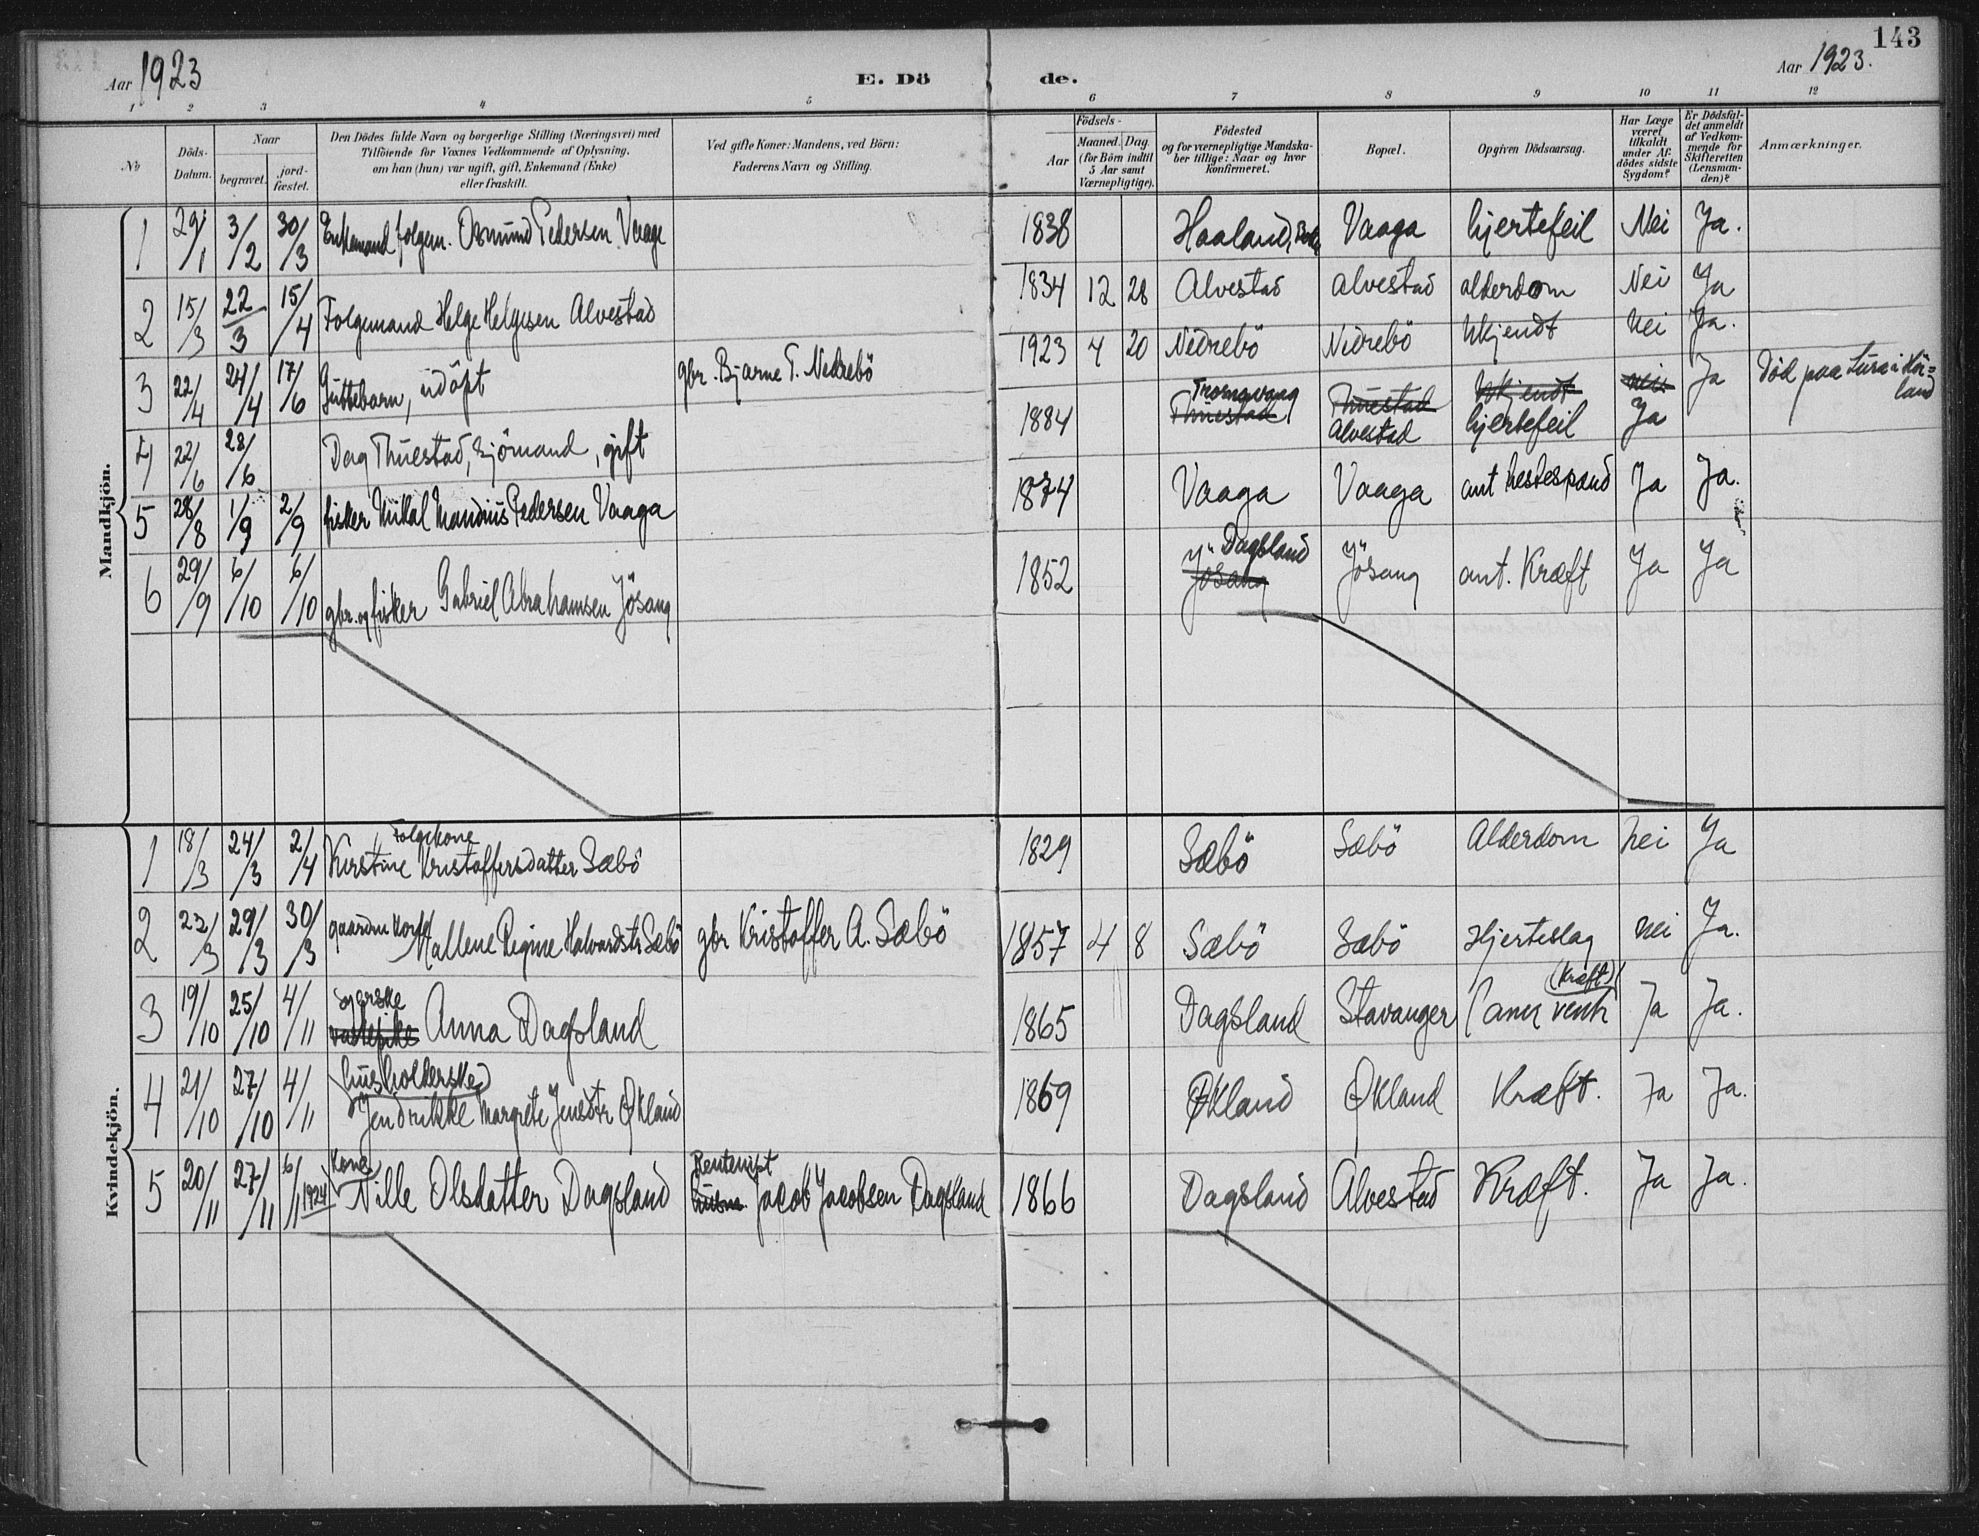 143
Aar 1923 E. Dö de. Aar 1923.
1 2 3 4 5 6 7 8 9 10 11 12
No Döds-Datum. Naar begravet. jord-fæstet. Den Dödes fulde Navn og borgerlige Stilling (Næringsvei) med Tilföiende for Voxnes Vedkommende af Oplysning, om han (hun) var ugift, gift, Enkemand (Enke) eller fraskilt. Ved gifte Koner: Mandens, ved Börn: Faderens Navn og Stilling. Födsels- Aar Maaned. Dag (for Börn indtil 5 Aar samt Værnepligtige). Födested og for værnepligtige Mandskaber tillige: Naar og hvor konfirmeret. Bopæl. Opgiven Dödsaarsag. Har Læge været tilkaldt under Afdödes sidste Sygdom? Er Dödsfaldet anmeldt af Vedkommende for Skifteretten (Lensmanden)? Anmærkninger.
Mandkjön.
1 29/1 3/2 30/3 Enkemand folgem. Osmund Pedersen Vaage 1838 Haaland, Vaaga hjertefeil Nei Ja.
2 15/3 22/3 15/4 Folgemand Helge Helgesen Alvestad 1834 12 28 Alvestad Alvestad alderdom Nei Ja
3 22/4 24/4 17/6 Guttebarn, udöpt gbr. Bjarne T. Nedrebö 1923 4 20 Nedrebö Nedrebö Ukjendt Nei Ja.
4 22/6 28/6 Dag Thuestad, Sjömand, gift 1884 Tromsvang Thuestad Thuestad Alvestad Ukjendt hjertefeil nei Ja Ja Död paa Tura i Hörland
5 28/8 1/9 2/9 fisker Mikal Mandius Pedersen Vaaga 1874 Vaaga Vaaga ant hestespand Ja Ja.
6 29/9 6/10 6/10 gbr. og fisker Gabriel Abrahamsen Jösang 1852 Dagsland Jösang Jösang ant. Kræft Ja Ja
Kvindekjön.
1 18/3 24/3 2/4 Folgekone Kirstine Kristoffersdatter Sæbö 1829 Sæbö Sæbö Alderdom Nei Ja
2 23/3 29/3 30/3 gaardm kone Mallene Regine Halvardstr Sæbö gbr Kristoffer A. Sæbö 1857 4 8 Sæbö Sæbö Hjerteslag Nei Ja.
3 19/10 25/10 4/11 Syerske Anna Dagsland 1865 Dagsland Stavanger Canc ventr (Kræft) Ja Ja.
4 21/10 27/10 4/11 husholderske Jendrikke Margrete Jensdtr Økland 1869 Økland Økland Kræft. Ja Ja.
5 20/11 27/11 6/11 1924 Kone Nille Olsdatter Dagsland Rentenist husm. Jacob Jacobsen Dagsland 1866 Dagsland Alvestad Kræft. Ja Ja.